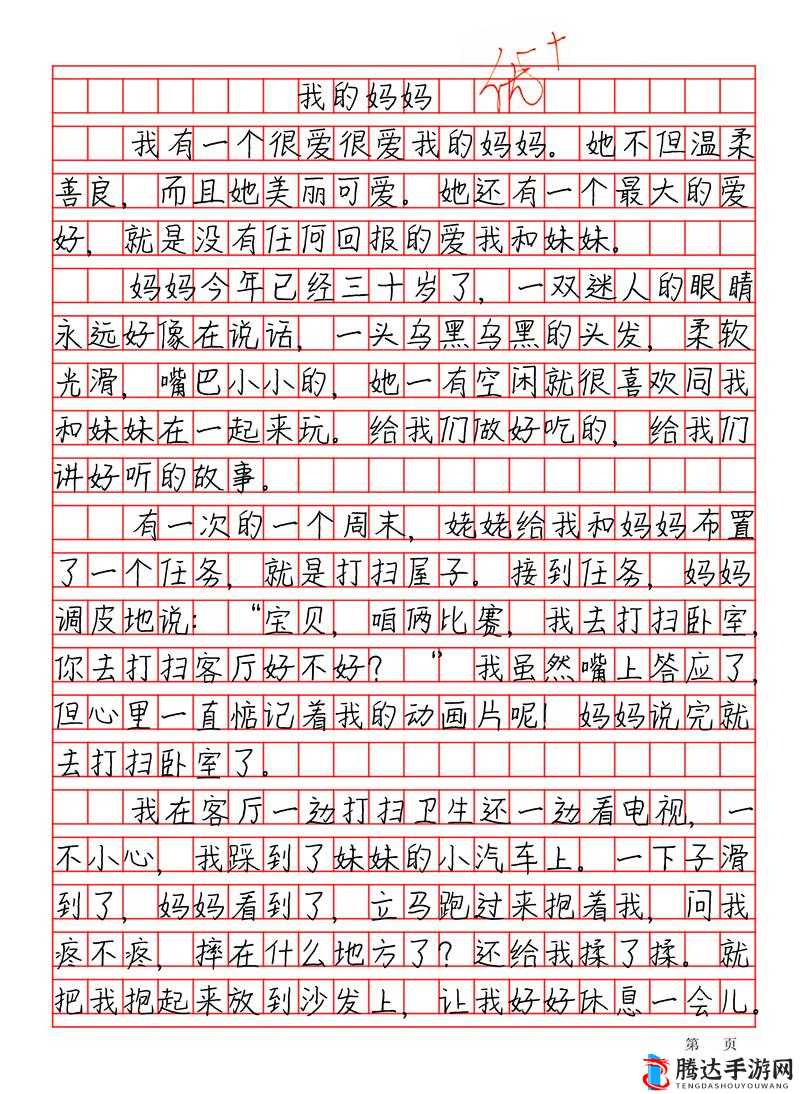 优+
我的妈妈
我有一个很爱很爱我的妈妈。她不但温柔
善良，而且她美丽可爱。她还有一个最大的爱
好，就是没有任何回报的爱我和妹妹。
妈妈今年已经三十岁了，一双迷人的眼睛
永远好像在说话，一头乌黑乌黑的头发，柔软
光滑，嘴巴小小的，她一有空闲就很喜欢同我
和妹妹在一起来玩。给我们做好吃的，给我们
讲好听的故事。
有一次的一个周末，姥姥给我和妈妈布置
了一个任务，就是打扫屋子。接到任务，妈妈
调皮地说：“宝贝，咱俩比赛，我去打扫卧室，
你去打扫客厅好不好？“我虽然嘴上答应了，
但心里一直惦记着我的动画片呢！妈妈说完就
去打扫卧室了。
我在客厅一边打扫卫生还一边看电视，一
不小心，我踩到了妹妹的小汽车上。一下子滑
到了，妈妈看到了，立马跑过来抱着我，问我
疼不疼，摔在什么地方了？还给我揉了揉。就
把我抱起来放到沙发上，让我好好休息一会儿。
第 页
腾达手游网
TENGDASHOUYOUWANG